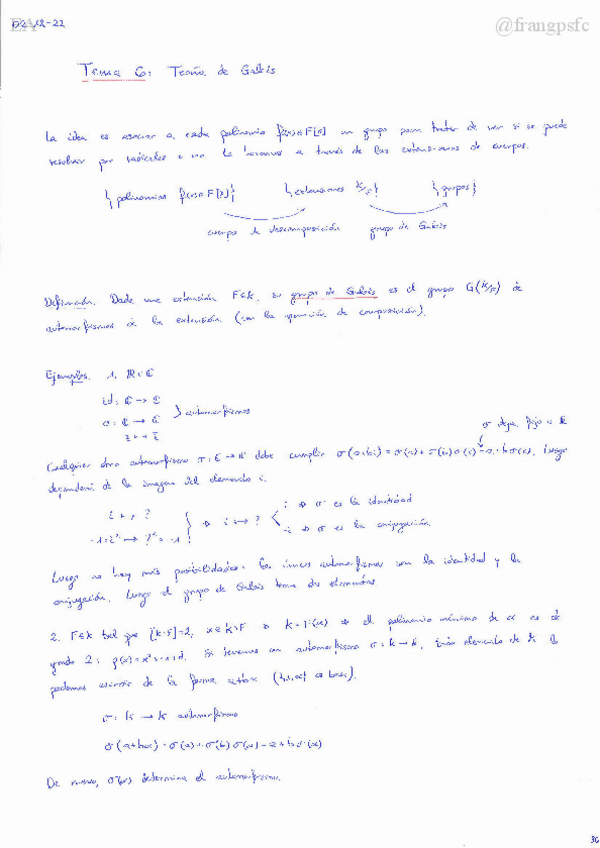 02-12-22
@frangpsfc
Tema 6: Teoría de Galois
La idea es asociar a cada polinomio f(x) ∈ F[x] un grupo para tratar de ver si se puede
resolver por radicales o no. Lo haremos a través de las extensiones de cuerpos.
{polinomios f(x) ∈ F[x]} {extensiones K/F} {grupos}
cuerpo de descomposición grupo de Galois
Definición. Dada una extensión F ⊆ K, su grupo de Galois es el grupo G(K/F) de
automorfismos de la extensión (con la operación de composición).
Ejemplos. 1. ℝ ⊆ ℂ
id: ℂ → ℂ
σ: ℂ → ℂ } automorfismos
z ↦ z̄
σ deja fijo a ℝ
Cualquier otro automorfismo σ: ℂ → ℂ debe cumplir σ(a+bi) = σ(a) + σ(b)σ(i) = a + bσ(i), luego
dependerá de la imagen del elemento i.
i ↦ ?
-1 = i² ↦ ?² = -1 } ⇒ i ↦ ? < i ⇒ σ es la identidad
-i ⇒ σ es la conjugación
Luego no hay más posibilidades: los únicos automorfismos son la identidad y la
conjugación. Luego el grupo de Galois tiene dos elementos
2. F ⊆ K tal que [K:F] = 2, α ∈ K\F ⇒ K = F(α) ⇒ el polinomio mínimo de α es de
grado 2: p(x) = x² + cx + d. Si tenemos un automorfismo σ: K → K, cada elemento de K lo
podemos escribir de la forma a+bα ({1, α} es base).
σ: K → K automorfismo
σ(a+bα) = σ(a) + σ(b)σ(α) = a + bσ(α)
De nuevo, σ(α) determina el automorfismo.
36